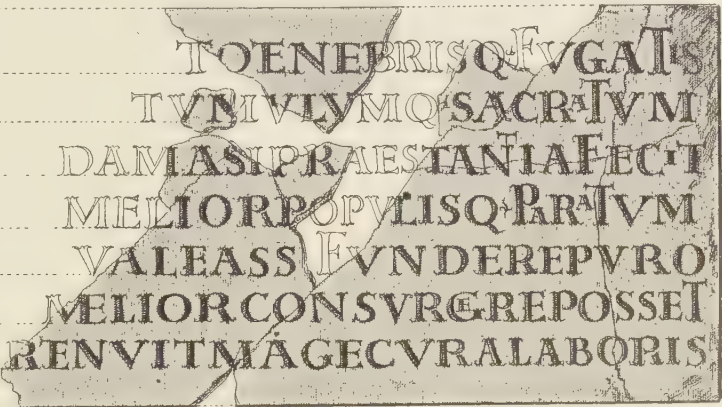 TOENEBRISQ·FVGATIS
TVMVLVMQ·SACRATVM
DAMASI PRAESTANTIA FECIT
MELIOR POPVLISQ·PARATVM
VALEAS SFVNDERE PVRO
MELIOR CONSVRGERE POSSET
RENVIT MAGE CVRA LABORIS